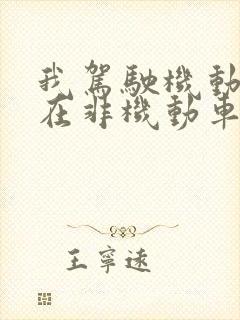 我駕駛機動
在非機動車
王寧遠